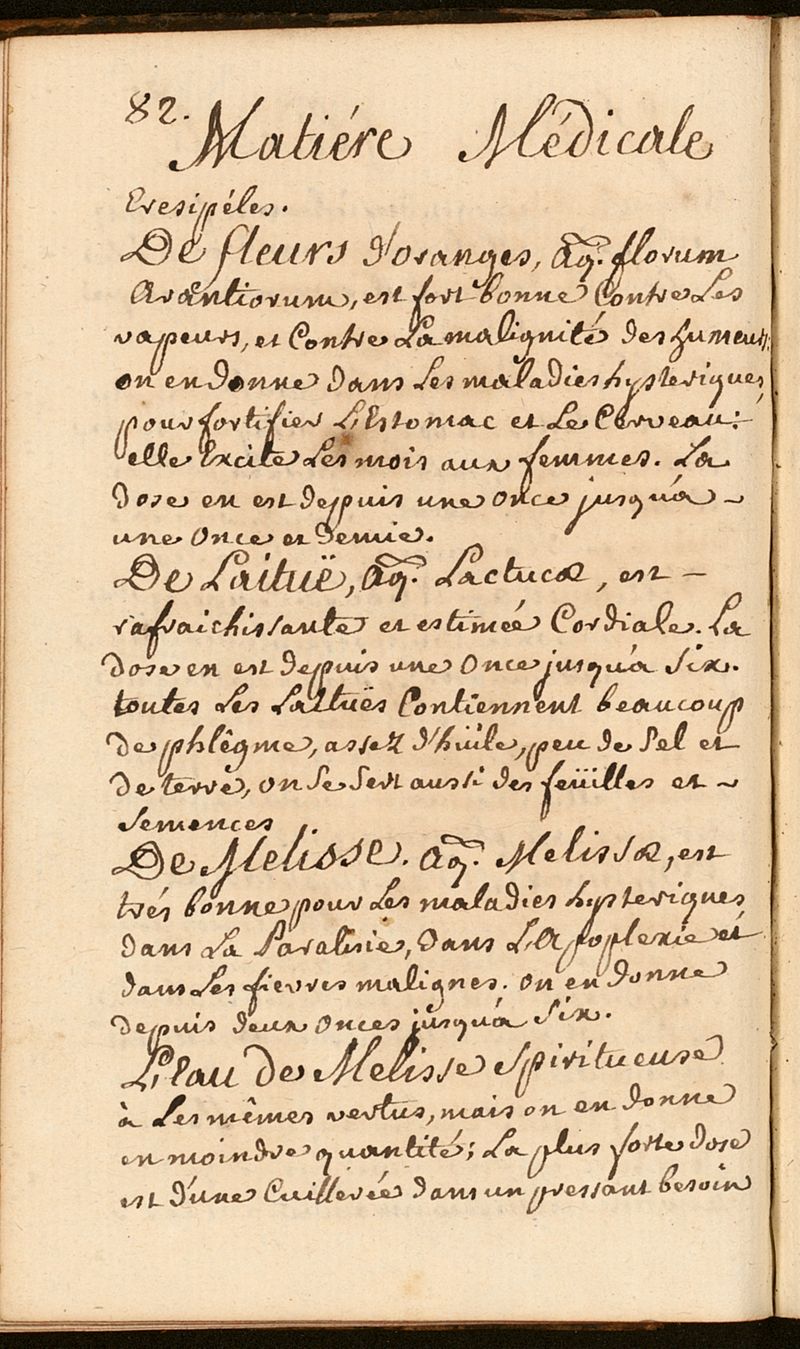 82.
Matiére Médicale
Eresipéles.
De fleurs d'oranges, aq. florum
Arantiorum, est fort bonne Contre Les
vapeurs, et Contre La malignité des humeurs.
on en donne dans Les maladies hysteriques,
pour fortifier L'Estomac et Le Cerveau:
elle Excite Les mois aux femmes. La
dose en est depuis une once jusqu'a -
une Once et demie.
De Laituë, aq. Lactucæ, est -
rafraichissante et estimée Cordiale. La
dose en est depuis une Once jusqu'a Six.
toutes Les Laituës Contiennent beaucoup
de phlêgme, assez d'hüile, peu de Sel et
de terre, on Se Sert aussi des feüilles et ~
Semences.
De Melisse. aq. Melissæ, est
trés bonne pour Les maladies hysteriques
dans La Paralisie, dans L'Apoplexie et
dans Les fievres malignes. on en donne
depuis deux Onces jusqu'a Six.
L'Eau de Melisse Spiritueuse
à Les mêmes vertus, mais on en donne
en moindre quantité; La plus forte dose
est d'une Cuillerée dans un pressant besoin